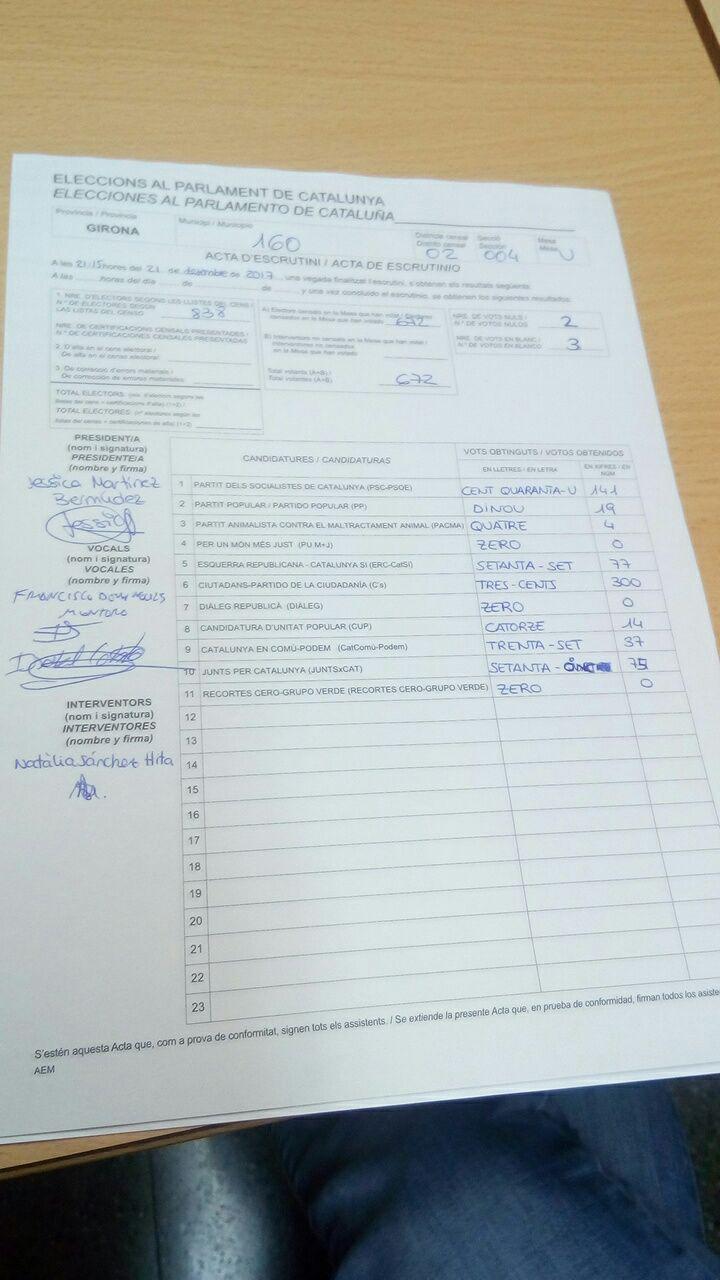 ELECCIONS AL PARLAMENT DE CATALUNYA
ELECCIONES AL PARLAMENTO DE CATALUÑA
Província / Provincia
GIRONA
Municipi / Municipio
160
Districte censal
Distrito censal
02
Secció
Sección
004
Mesa
Mesa
U
ACTA D'ESCRUTINI / ACTA DE ESCRUTINIO
A les 21:15 hores del 21 de desembre de 2017, una vegada finalitzat l'escrutini, s'obtenen els resultats següents:
A las hores del día de de y una vez concluido el escrutinio, se obtienen los siguientes resultados:
1. NRE. D'ELECTORS SEGONS LES LLISTES DEL CENS /
N.º DE ELECTORES SEGÚN
LAS LISTAS DEL CENSO
838
NRE. DE CERTIFICACIONS CENSALS PRESENTADES /
N.º DE CERTIFICACIONES CENSALES PRESENTADAS
2. D'alta en el cens electoral /
De alta en el censo electoral:
3. De correcció d'errors materials /
De corrección de errores materiales:
TOTAL ELECTORS
TOTAL ELECTORES
A) Electors censats en la Mesa que han votat / Electores
censados en la Mesa que han votado
672
B) Interventors no censats
en la Mesa que han votat /
Interventores no censados
en la Mesa que han votado
Total votants (A+B) /
Total votantes (A+B)
672
NRE. DE VOTS NULS /
N.º DE VOTOS NULOS
2
NRE. DE VOTS EN BLANC /
N.º DE VOTOS EN BLANCO
3
PRESIDENT/A
(nom i signatura)
PRESIDENTE/A
(nombre y firma)
Jessica Martínez
Bermúdez
Jessica
VOCALS
(nom i signatura)
VOCALES
(nombre y firma)
FRANCISCO
MONTORO
INTERVENTORS
(nom i signatura)
INTERVENTORES
(nombre y firma)
Natàlia Sánchez Hita
CANDIDATURES / CANDIDATURAS
VOTS OBTINGUTS / VOTOS OBTENIDOS
EN LLETRES / EN LETRA
EN XIFRES / EN NÚM
1 PARTIT DELS SOCIALISTES DE CATALUNYA (PSC-PSOE) CENT QUARANTA-U 141
2 PARTIT POPULAR / PARTIDO POPULAR (PP) DINOU 19
3 PARTIT ANIMALISTA CONTRA EL MALTRACTAMENT ANIMAL (PACMA) QUATRE 4
4 PER UN MÓN MÉS JUST (PU M+J) ZERO 0
5 ESQUERRA REPUBLICANA - CATALUNYA SÍ (ERC-CatSí) SETANTA-SET 77
6 CIUTADANS-PARTIDO DE LA CIUDADANÍA (C's) TRES-CENTS 300
7 DIÀLEG REPUBLICÀ (DIÀLEG) ZERO 0
8 CANDIDATURA D'UNITAT POPULAR (CUP) CATORZE 14
9 CATALUNYA EN COMÚ-PODEM (CatComú-Podem) TRENTA-SET 37
10 JUNTS PER CATALUNYA (JUNTSxCAT) SETANTA - 75
11 RECORTES CERO-GRUPO VERDE (RECORTES CERO-GRUPO VERDE) ZERO 0
12
13
14
15
16
17
18
19
20
21
22
23
S'estén aquesta Acta que, com a prova de conformitat, signen tots els assistents. / Se extiende la presente Acta que, en prueba de conformidad, firman todos los
AEM